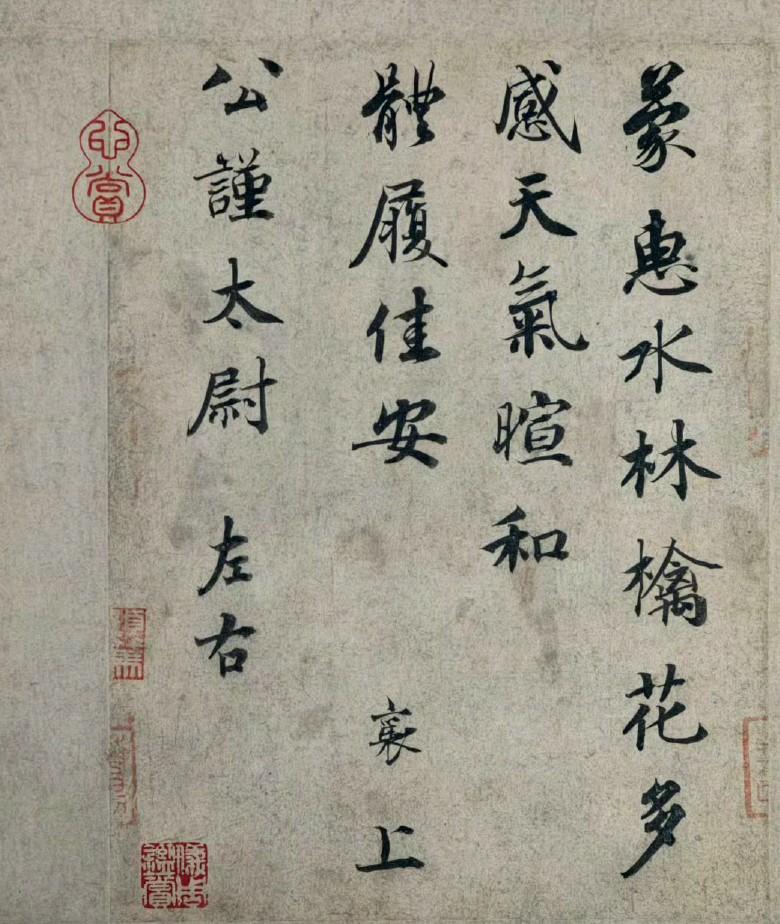 蒙惠水林檎花多
感天氣暄和
體履佳安 襄上
公謹太尉 左右
心賞
儀周鑒賞